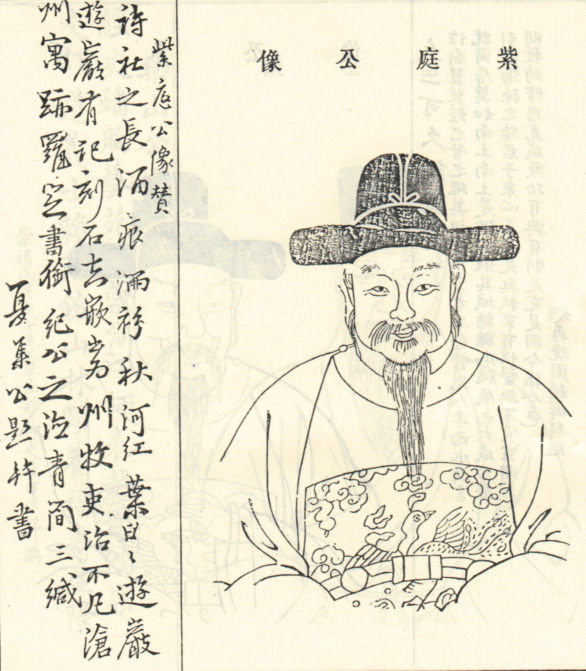 紫庭公像
紫庭公像贊
詩社之長酒痕滿衫秋河紅葉遊巖
遊巖有記刻石嵌州牧吏治不凡滄
州寓跡羅書銜紀公之治青簡三緘
公題并書